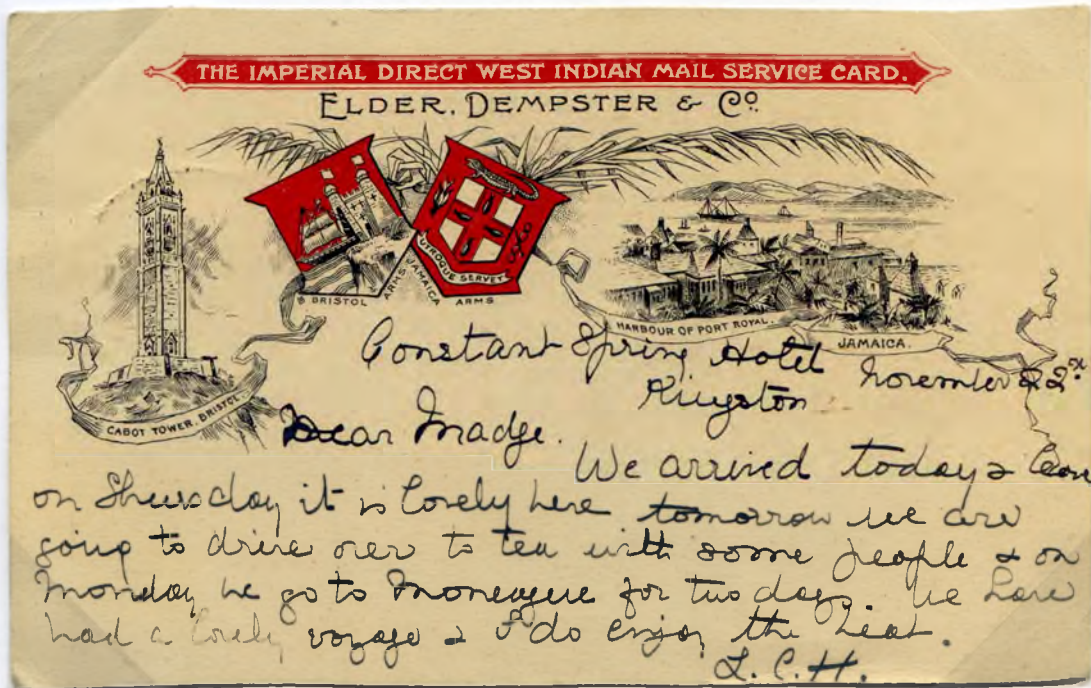 THE IMPERIAL DIRECT WEST INDIAN MAIL SERVICE CARD.
ELDER, DEMPSTER & Co.
BRISTOL ARMS
JAMAICA ARMS
UTROQUE SERVET
HARBOUR OF PORT ROYAL.
JAMAICA.
CABOT TOWER, BRISTOL.
Constant Spring Hotel
Kingston
November 22
Dear Madge.
We arrived today &
on Thursday it is lovely here tomorrow we are
going to drive over to tea with some people & on
Monday we go to Moneague for two days. We have
had a lovely voyage & I do enjoy the heat.
L. C. H.